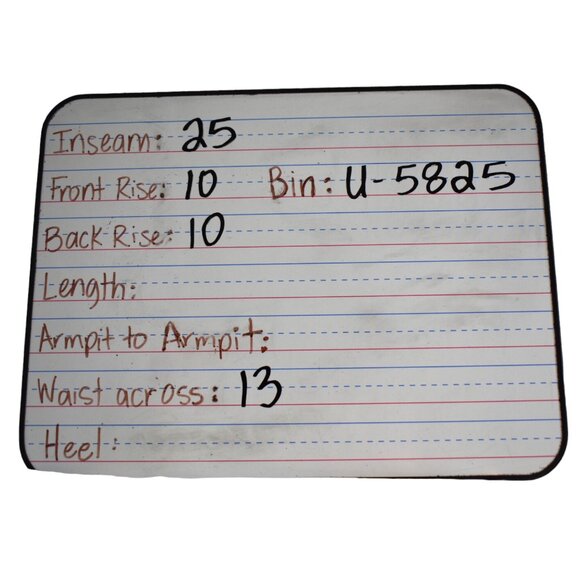 Inseam: 25
Front Rise: 10 Bin: U-5825
Back Rise: 10
Length:
Armpit to Armpit:
Waist across: 13
Heel: